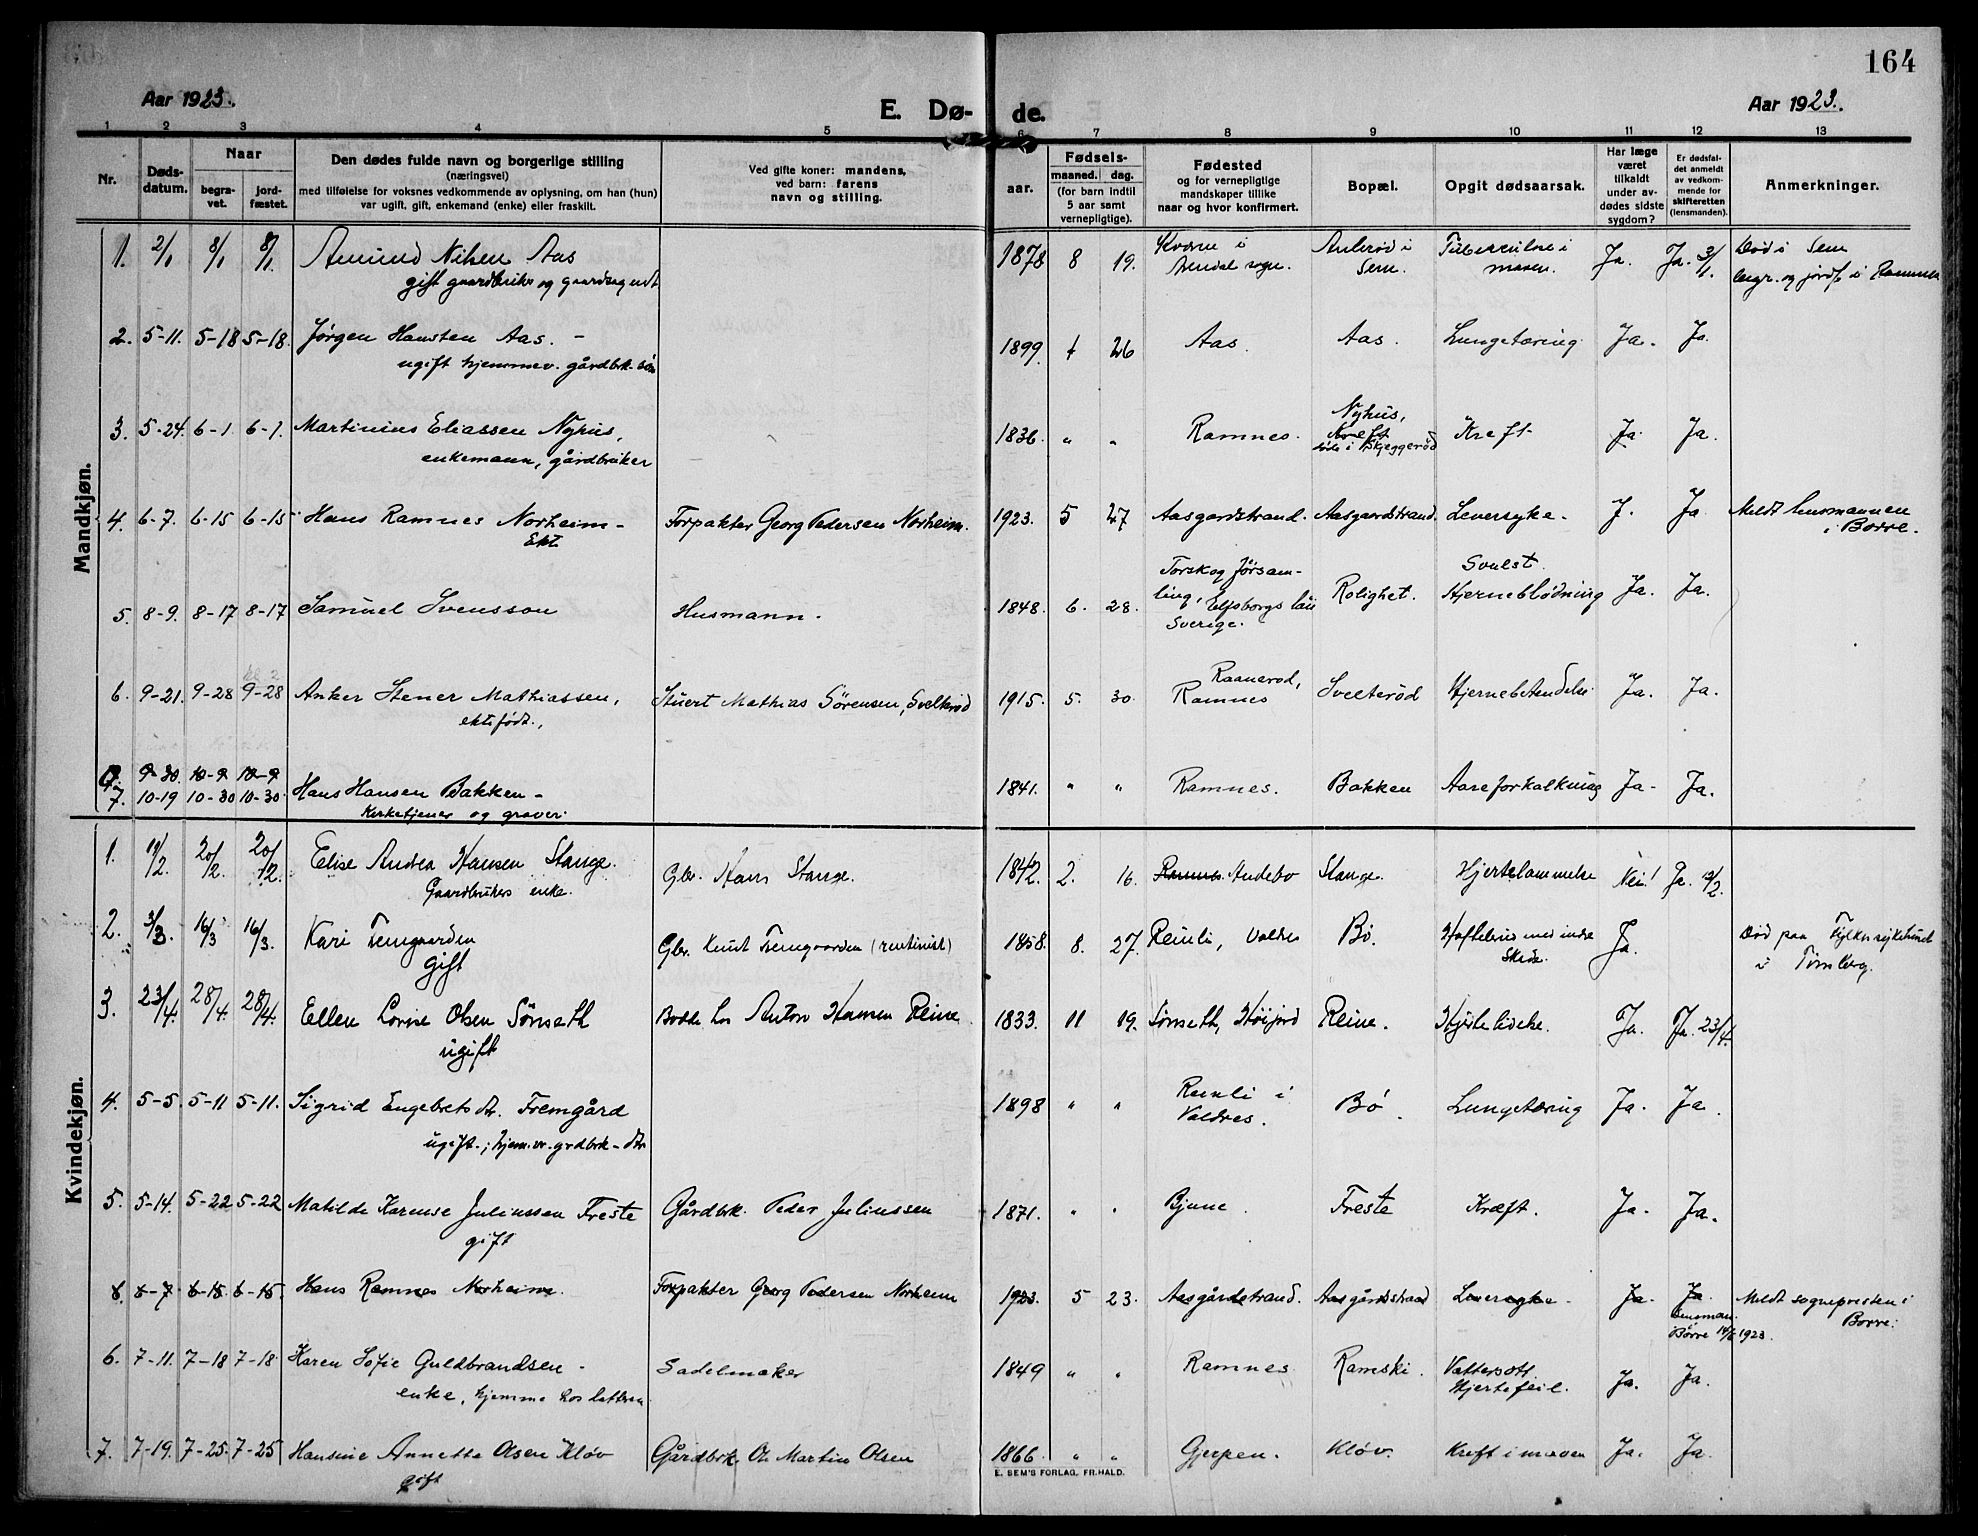 164
Aar 1923. E. Dø- de. Aar 1923.
1 2 3 4 5 6 7 8 9 10 11 12 13
Nr.
Døds-
datum.
Naar
begra-
vet.
jord-
fæstet.
Den dødes fulde navn og borgerlige stilling
(næringsvei)
med tilføielse for voksnes vedkommende av oplysning, om han (hun)
var ugift, gift, enkemand (enke) eller fraskilt.
Ved gifte koner: mandens,
ved barn: farens
navn og stilling.
Fødsels-
aar.
maaned. dag.
(for barn indtil
5 aar samt
vernepligtige).
Fødested
og for vernepligtige
mandskaper tillike
naar og hvor konfirmert.
Bopæl.
Opgit dødsaarsak.
Har læge
været
tilkaldt
under av-
dødes sidste
sygdom?
Er dødsfal-
det anmeldt
av vedkom-
mende for
skifteretten
(lensmanden).
Anmerkninger.
Mandkjøn.
1. 2/1 8/1 8/1 Amund Nilsen Aas 1878 8 19. i Aulerød i Tuberkulose i Ja. Ja. 3/1 Død i Sem
gift gaardbruker og Arendal sogn. Sem. maven. begr. og jordf. i Ramnes
2. 5-11. 5-18 5-18. Jørgen Hansten Aas. - 1899. 26 Aas. Aas. Lungetæring Ja. Ja.
ugift hjemmev. gårdbrk. søn
3. 5-24. 6-1. 6-1. Martinius Eliassen Nyhus, 1836. " " Ramnes. Nyhus, Kreft Kreft Ja. Ja.
enkemann, gårdbruker døde i Skjeggerød
4. 6-7. 6-15 6-15 Hans Ramnes Norheim - Forpakter Georg Pedersen Norheim. 1923. 5 27 Aasgardstrand. Aasgaardstrand. Leversyke. J. Ja Meldt lensmannen
Ekt. i Borre.
5. 8-9. 8-17 8-17 Samuel Svensson Husmann. 1848. 6. 28. Torskog forsam- Rolighet. Svulst. Ja. Ja.
ling, Elfsborgs län Hjerneblødning
Sverige.
6. 9-21. 9-28 9-28 Anker Stener Mathiassen, Stuert Mathias Sørensen, Svelterød 1915. 5. 30. Raanerød, Svelterød Hjernebetendelse Ja. Ja.
ekte født., Ramnes
9-30. 10-9 10-9
7. 10-19 10-30 10-30. Hans Hansen Bakken - 1841. " " Ramnes. Bakken Aareforkalkning Ja. Ja.
Kirketjener og graver.
Kvindekjøn.
1. 11/2. 20/2. 20/2. Elise Andrea Hansen Stange. Gbr. Hans Stange. 1842. 2. 16. Ramnes Andebo Stange. Hjertelammelse Nei! Ja. 12/2.
Gaardbrukers enke.
2. 3/3. 16/3 16/3. Kari Fremgaarden Gbr. Knut Fremgaarden (rentinist) 1858. 8. 27. Reinli, Valdres Bø. Hoftebrud med indre Ja. Død paa Fylkessykehuset
gift Skade. i Tønsberg.
3. 23/4. 28/4. 28/4. Ellen Lovise Olsen Sönseth Bodde hos Anton Hansen Reine. 1833. 11 19. Sönseth, Höijord Reine. Hjertelidelse. Ja. Ja. 23/4.
ugift
4. 5-5. 5-11 5-11. Sigrid Engebretsdtr. Fremgård 1898 " " Reinli i Bø. Lungetæring Ja. Ja.
ugift.; hjem.v. grdbrk-dtr Valdres.
5. 5-14. 5-22 5-22 Matilde Karense Juliussen Freste Gårdbrk. Peder Juliussen 1871. " " Bjune. Freste Kræft. Ja. Ja.
gift
6. 6-7 6-15 6-15. Hans Ramnes Norheim. Forpakter Georg Pedersen Norheim 1923. 5 23. Aasgårdstrand. Aasgårdstrand Leversyke. Ja. Ja. Meldt sognepresten i
Lensman. Borre.
Borre 14/6 1923.
6. 7-11. 7-18 7-18. Karen Sofie Guldbrandsen - Sadelmaker 1849 " " Ramnes. Ramski. Vattersott Ja. Ja.
enke, hjemme hos datteren Hjertefeil.
7. 7-19. 7-25. 7-25 Hansine Annette Olsen Kløv Gårdbrk. O. Martin Olsen 1866. " " Gjerpen. Kløv. Kreft i maven Ja. Ja.
gift
E. SEM'S FORLAG, FR.HALD.